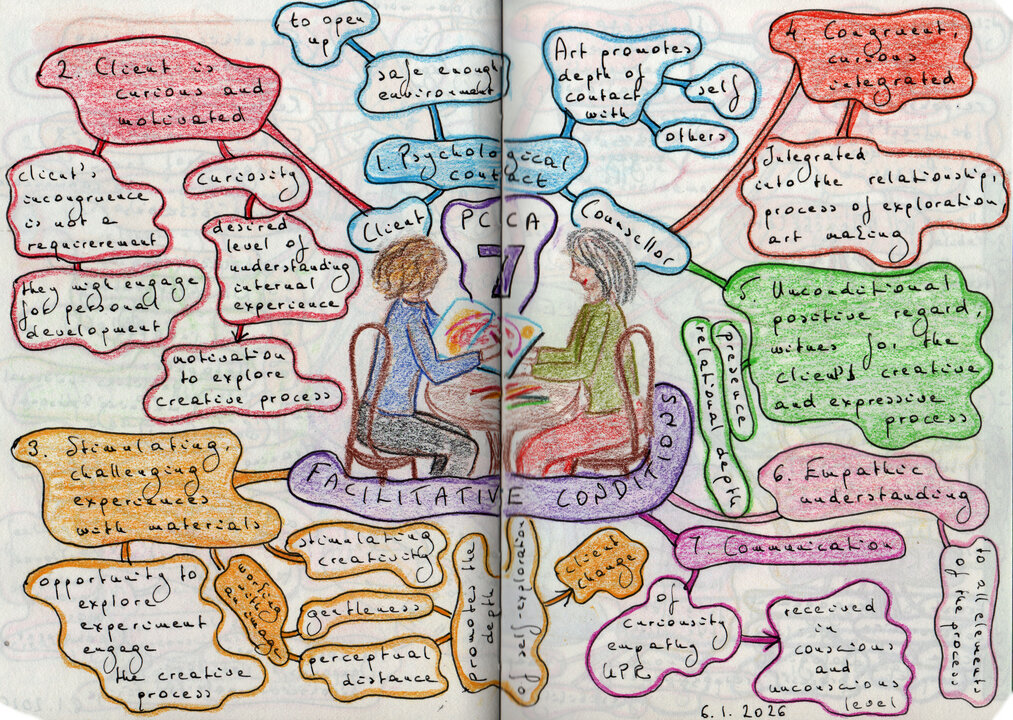 to open
up
safe enough
environment
Art promotes
depth of
contact
with
self
others
1. Psychological
contact
Client
Counsellor
PCCA
7
FACILITATIVE CONDITIONS
2. Client is
curious and
motivated
client's
incongruence
is not a
requirerement
they migh engage
for personal
development
curiosity
desired
level of
understanding
internal
experience
motivation
to explore
creative process
3. Stimulating,
challenging
experiences
with materials
opportunity to
explore
experiment
engage
the creative
process
working
with image
stimulating
creativity
gentleness
perceptual
distance
promotes the
depth
of self-exploration
client
change
4. Congruent,
curious
integrated
Integrated
into the relationship,
process of exploration,
art making
5. Unconditional
positive regard,
witnes for the
client's creative
and expressive
process
relational depth
6. Empathic
understanding
to all elements
of the process
7. Communication
of
curiousity
empathy
UPR
received
in
conscious
and
unconscious
level
6.1.2026